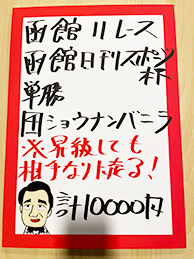 函館11レース
函館日刊スポーツ杯
単勝
団ショウナンバニラ
※昇級しても
相手なり走る!
計10000円